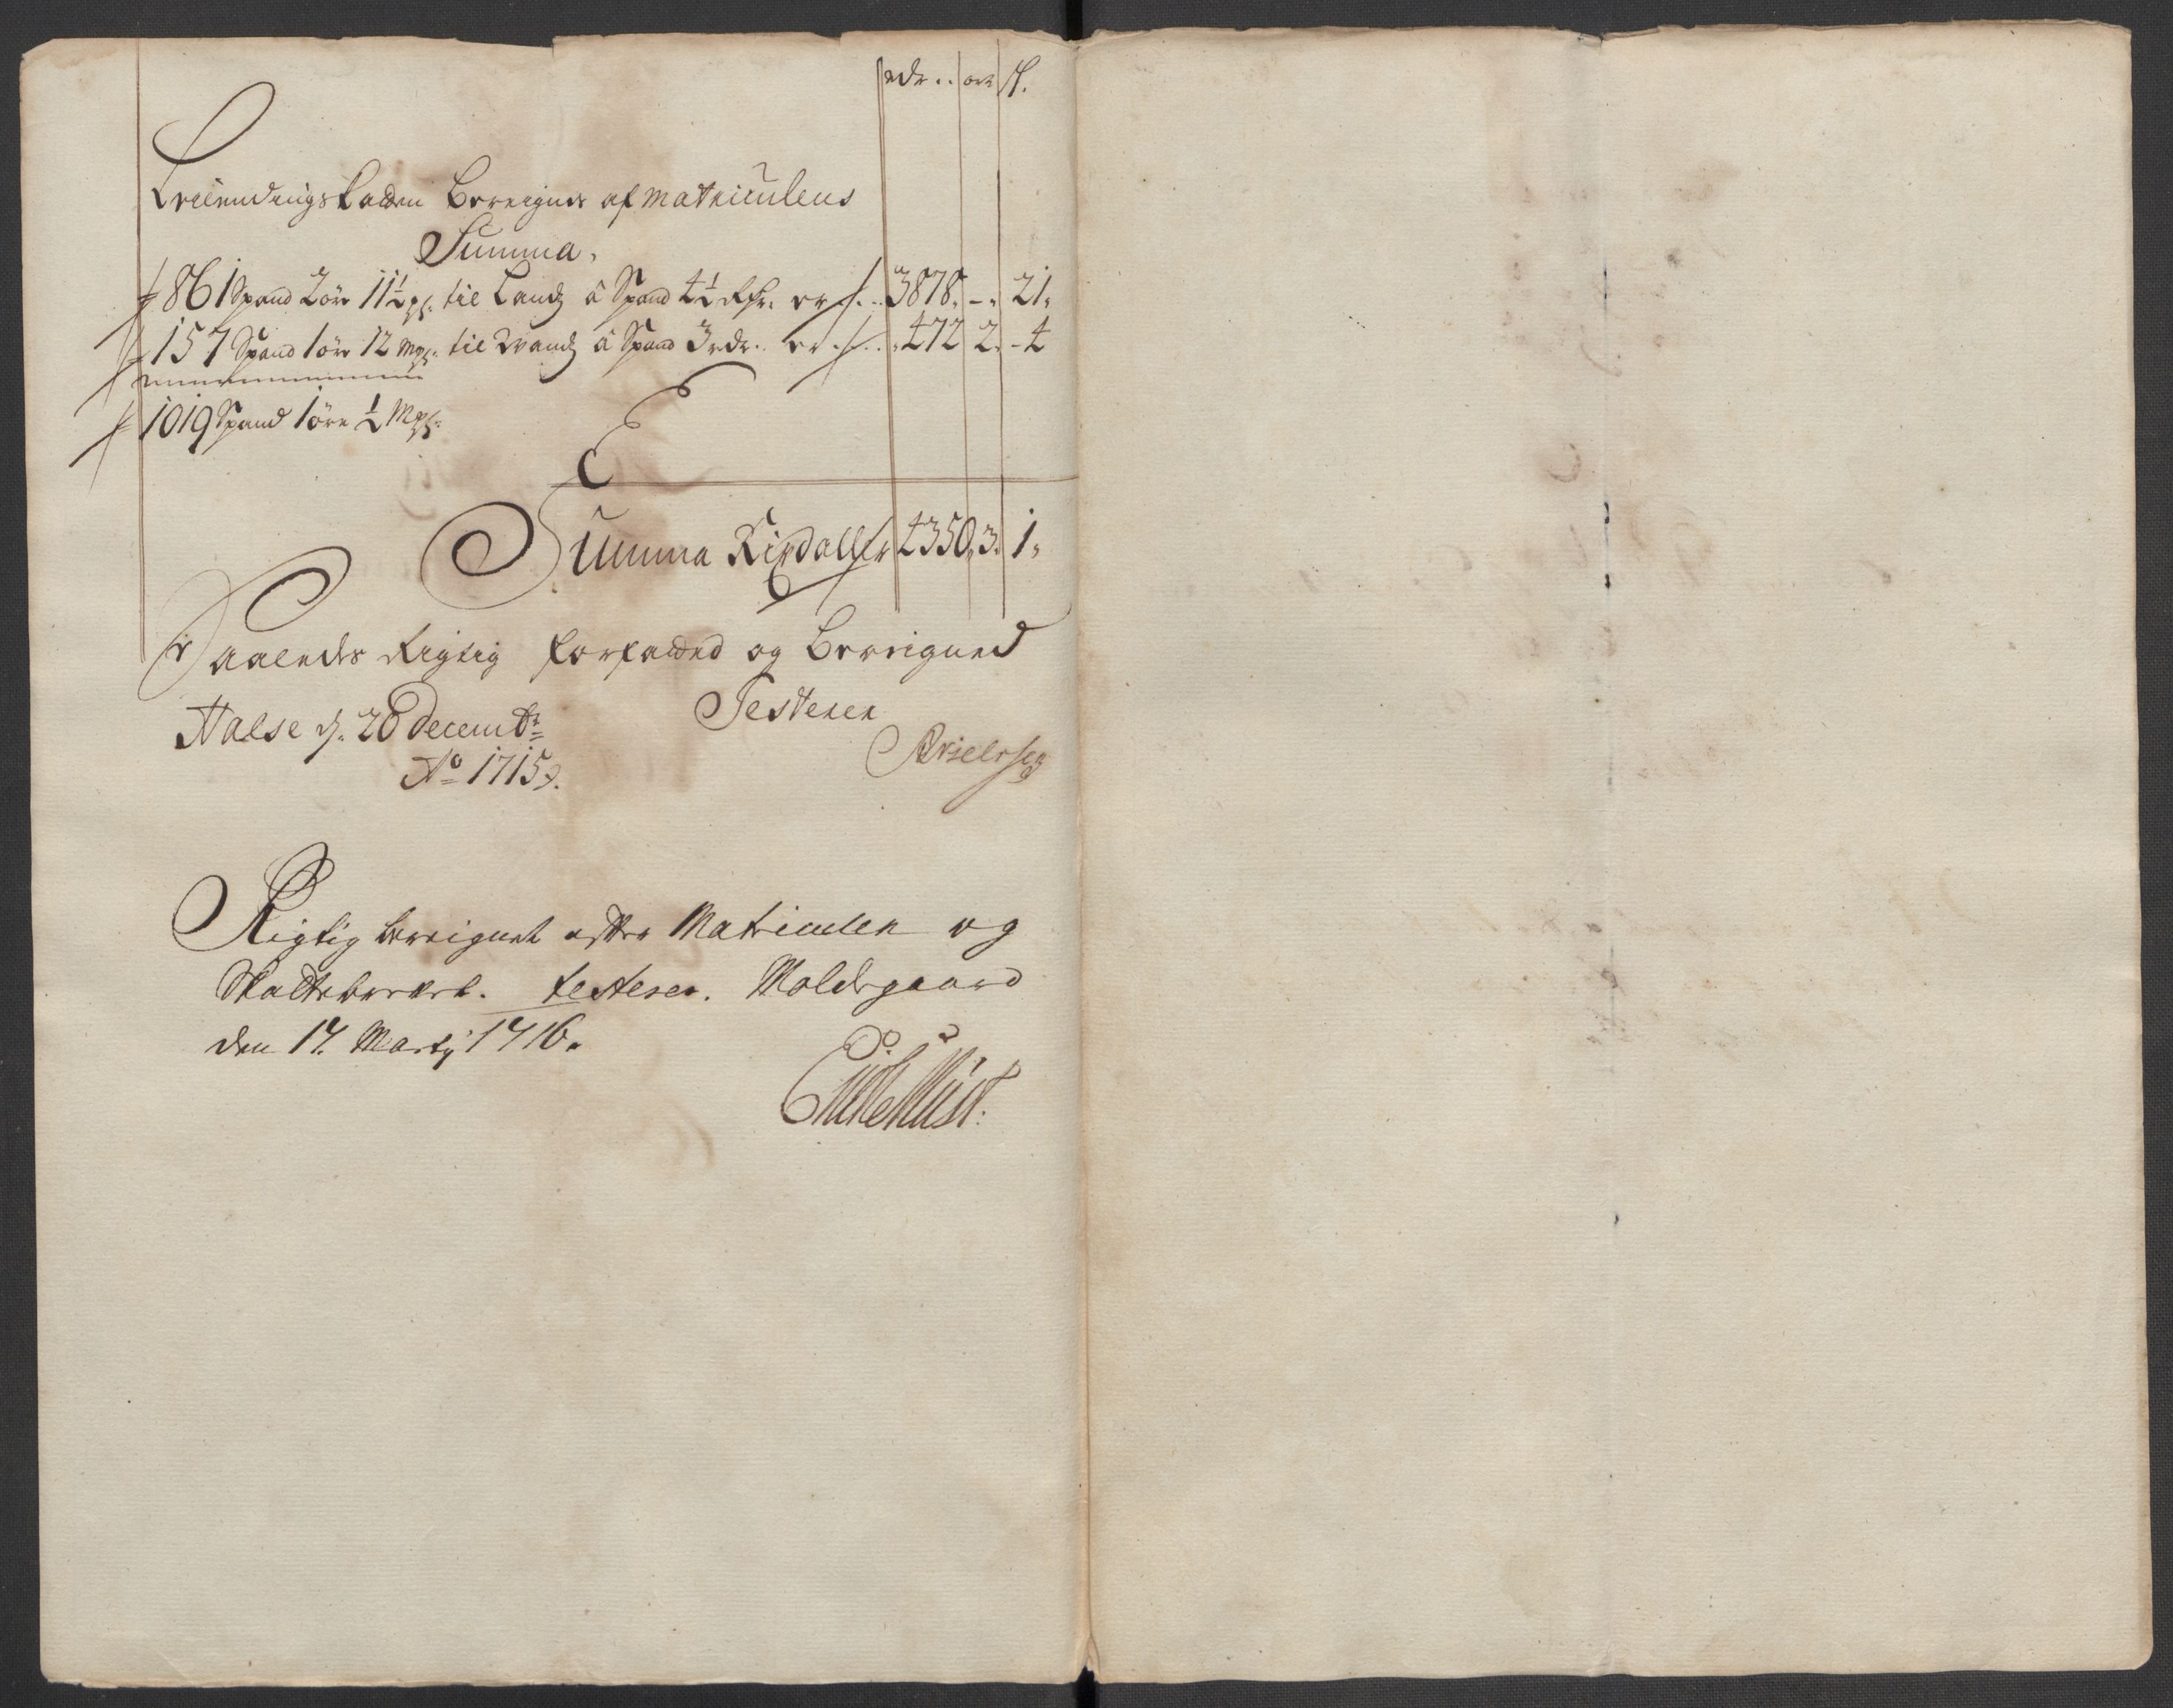 rdr. ort ß.
Leilendingsskatten Bereignes af Matriculens
Summa,
861 Spand 2 öre 11½ mgl: til Landz â Spand 4½ Rdr. er 3878. - 21,
157 Spand 1 öre 12 Mgl: til Vandz â Spand 3 rdr. er 472 2. - 4
1019 Spand 1 öre ½ Mgl:
Summa Rixdaller 4350. 3. 1,
Saaledes Rigtig forfatted og Bereigned
Halse d. 28 Decembr: Testerer
Ao 1715.
Rigtig bereignet efter Matriculen og
Skattebrevet. testerer. Moldegaard
den 17. Martij 1716.